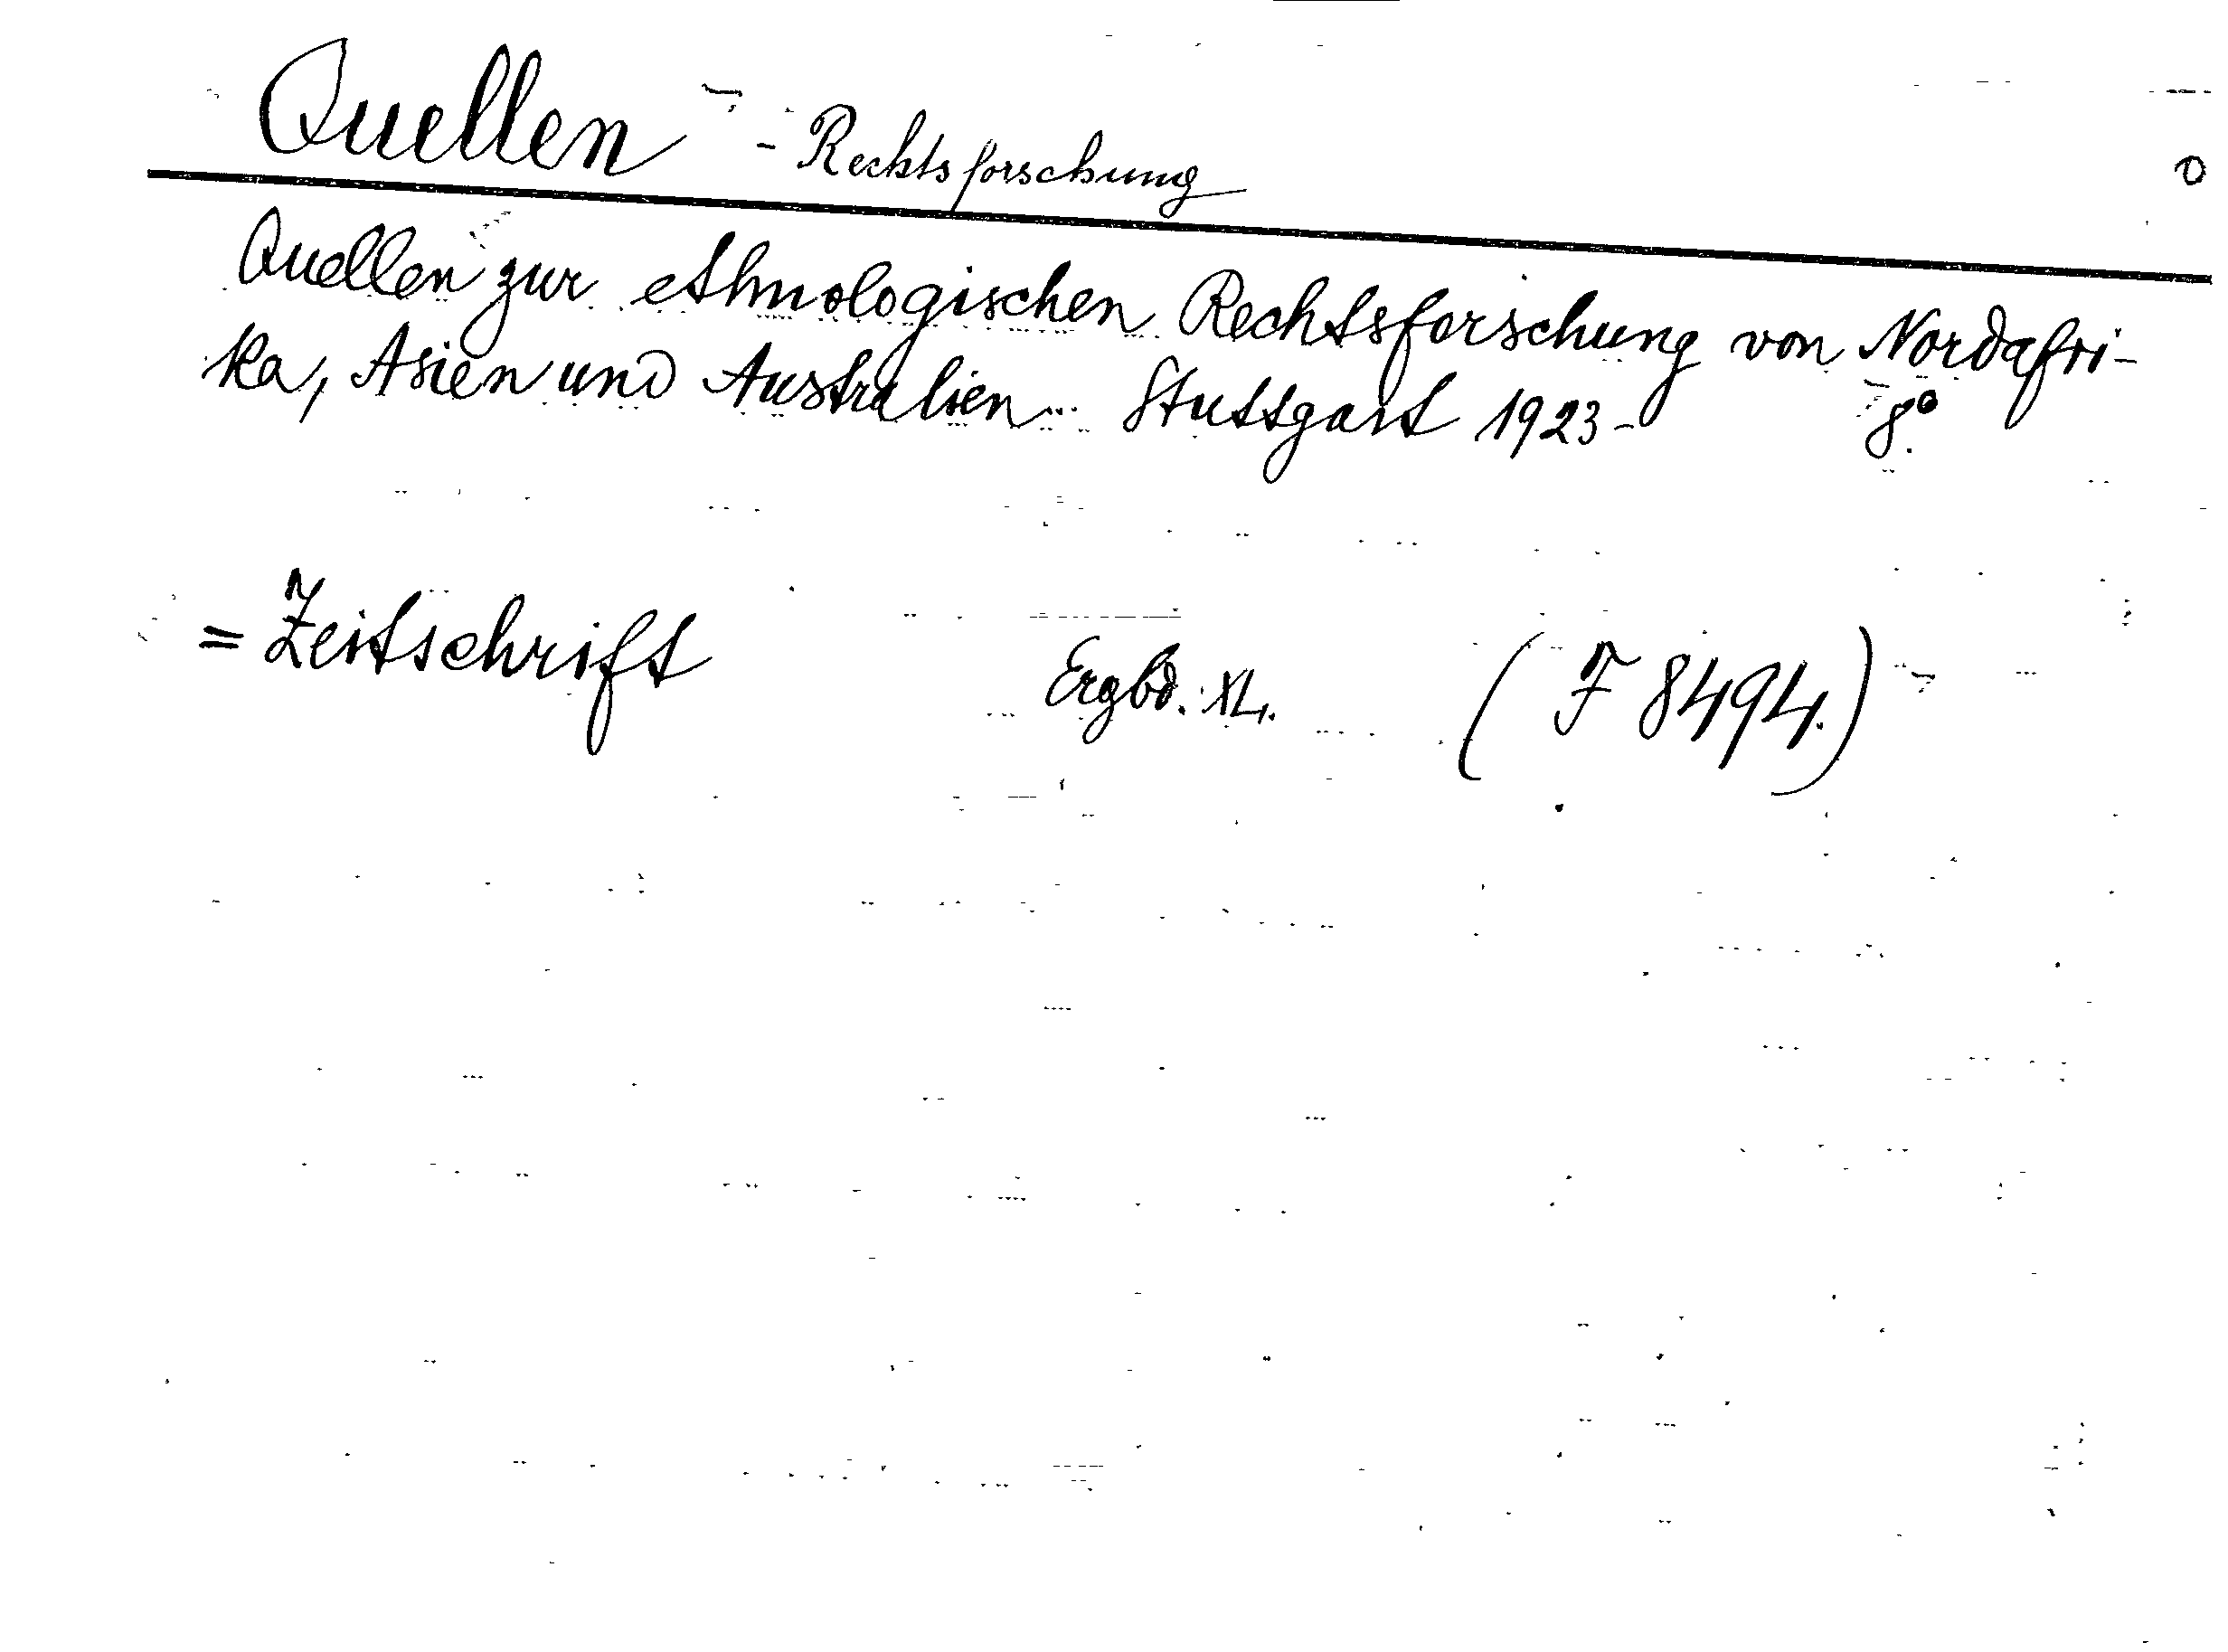 Quellen - Rechtsforschung
o
Quellen zur ethnologischen Rechtsforschung von Nordafri-
ka, Asien und Australien. Stuttgart 1923- 8°.
= Zeitschrift Ergbd. XL. (F 8494.)